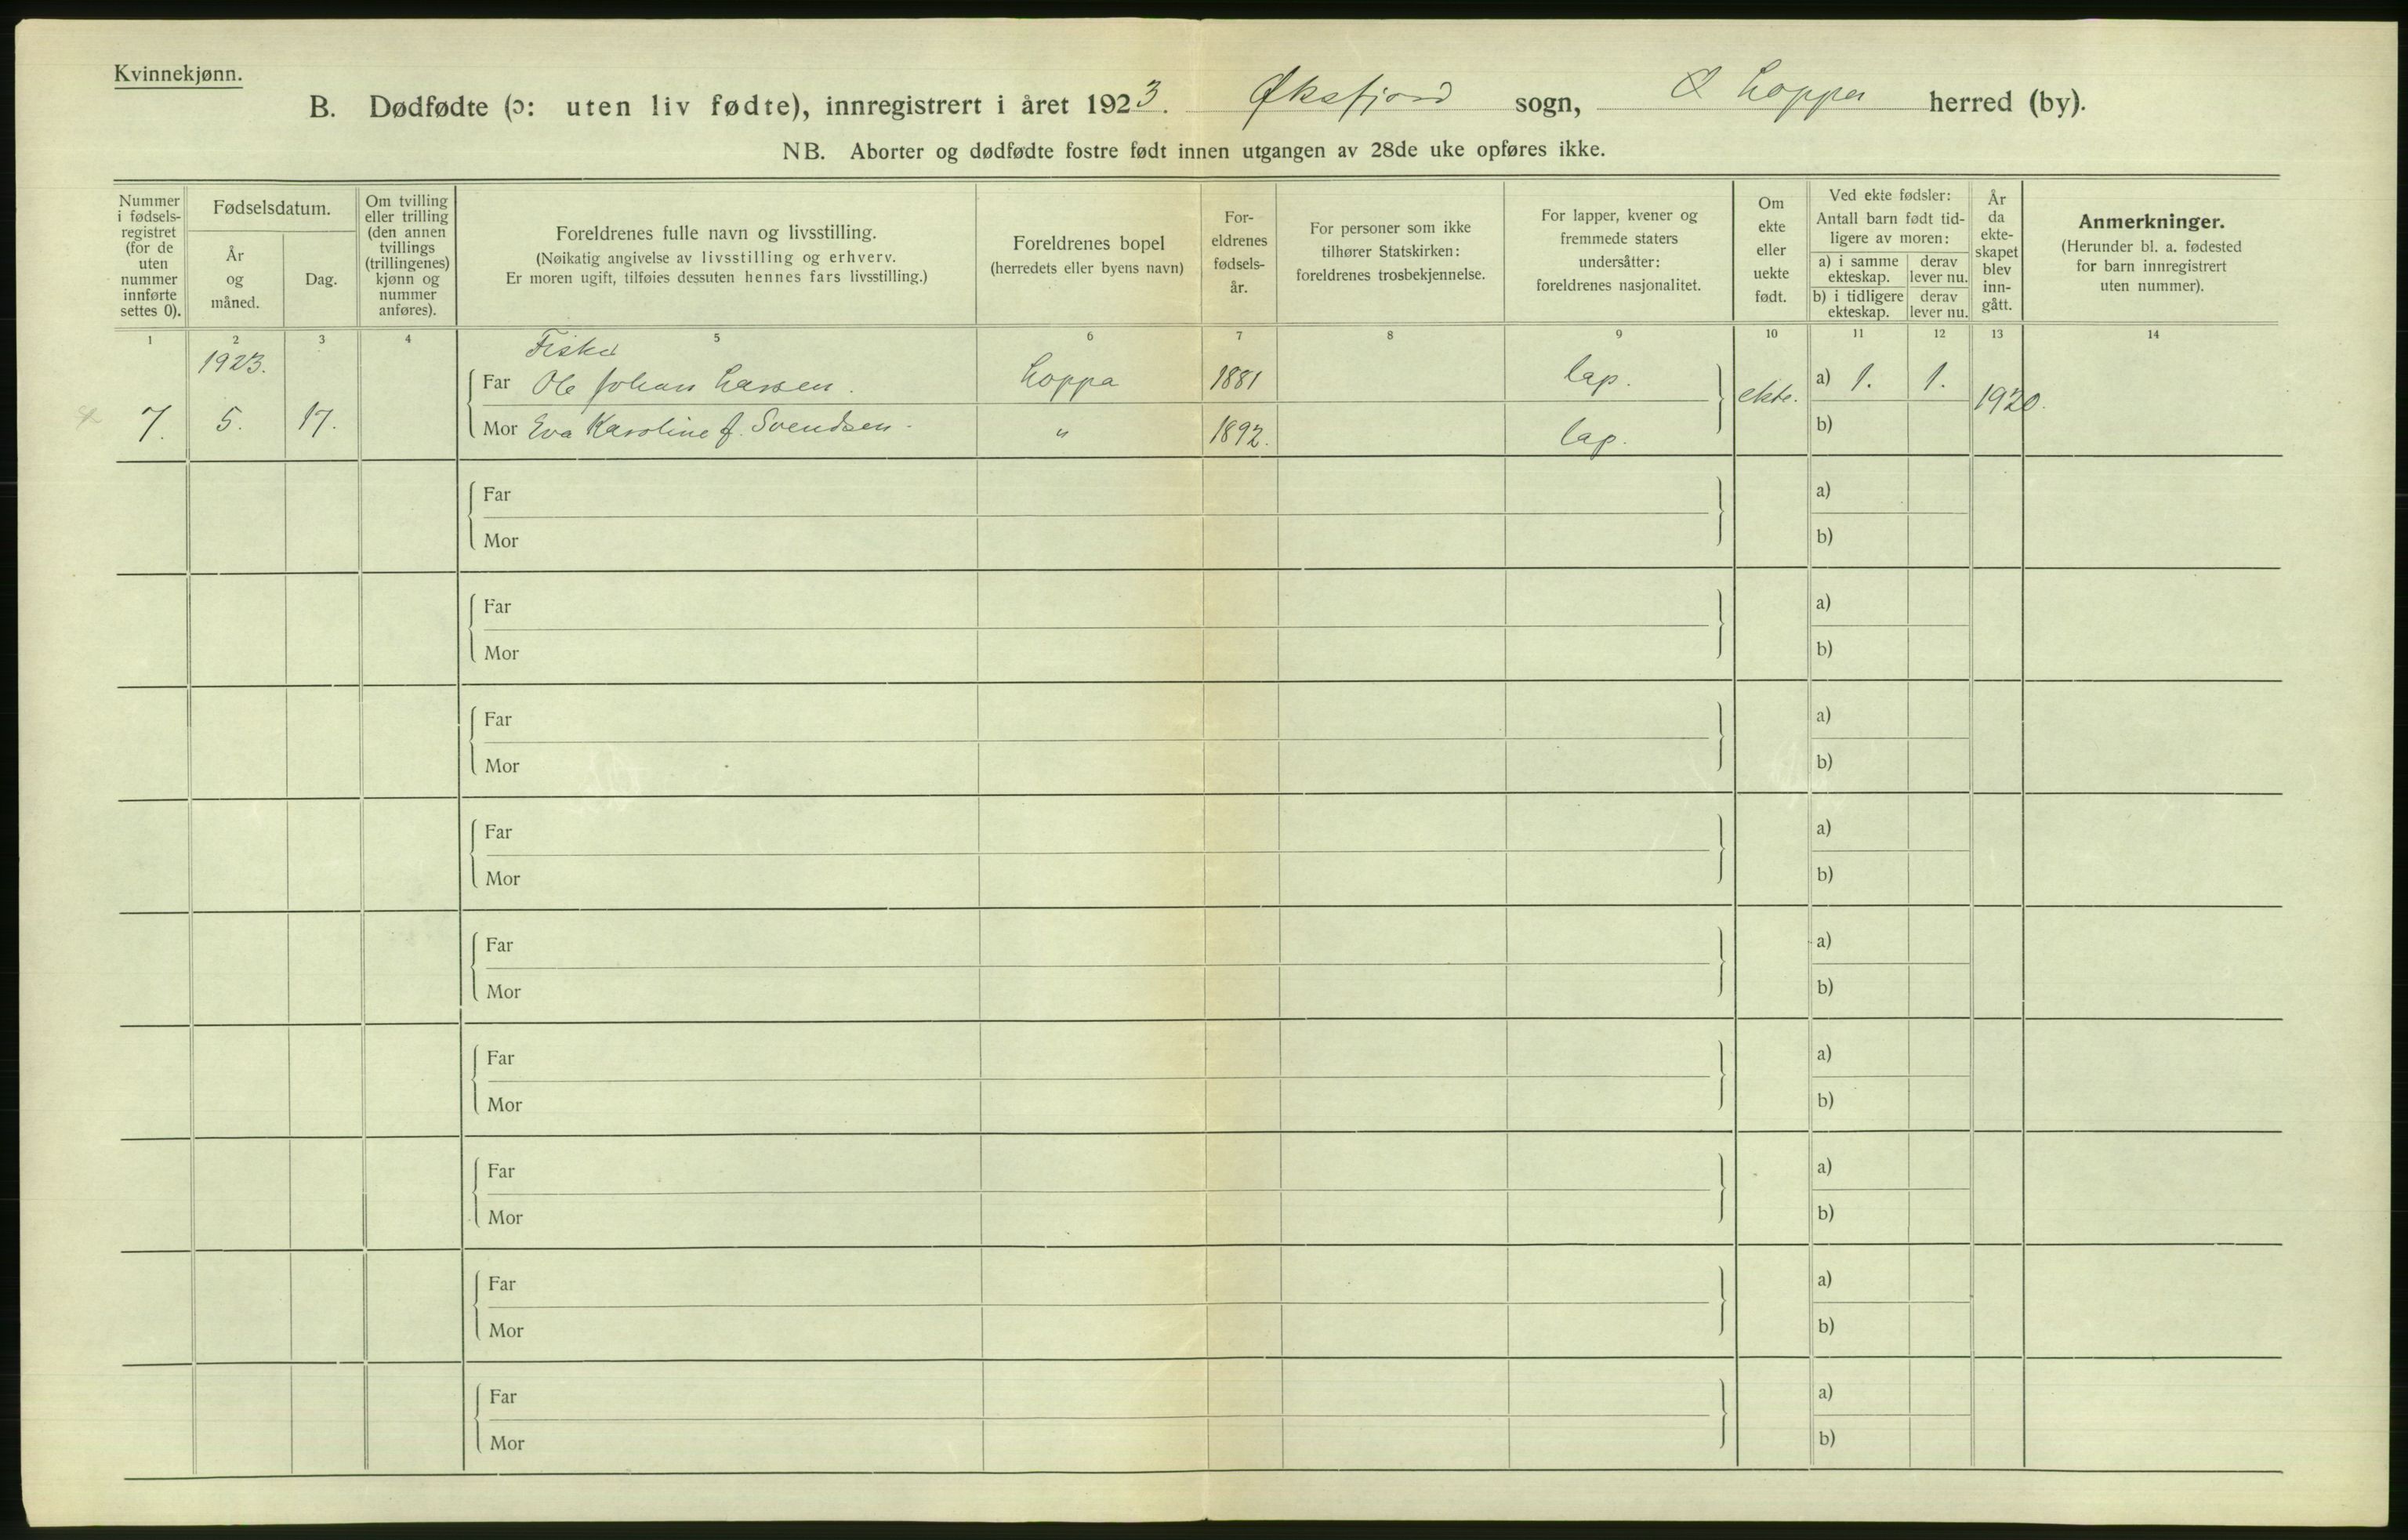 Kvinnekjønn.
B. Dødfødte (ɔ: uten liv fødte), innregistrert i året 1923. Øksfjord sogn, Loppa herred (by).
NB. Aborter og dødfødte fostre født innen utgangen av 28de uke opføres ikke.
Nummer i fødsels- registret (for de uten nummer innførte settes 0).
Fødselsdatum.
År og måned.
Dag.
Om tvilling eller trilling (den annen tvillings (trillingenes) kjønn og nummer anføres).
Foreldrenes fulle navn og livsstilling.
(Nøikatig angivelse av livsstilling og erhverv.
Er moren ugift, tilføies dessuten hennes fars livsstilling.)
Foreldrenes bopel
(herredets eller byens navn)
For- eldrenes fødsels- år.
For personer som ikke tilhører Statskirken: foreldrenes trosbekjennelse.
For lapper, kvener og fremmede staters undersåtter: foreldrenes nasjonalitet.
Om ekte eller uekte født.
Ved ekte fødsler:
Antall barn født tid- ligere av moren:
a) i samme ekteskap.
derav lever nu.
b) i tidligere ekteskap.
derav lever nu.
År da ekte- skapet blev inn- gått.
Anmerkninger.
(Herunder bl. a. fødested for barn innregistrert uten nummer).
1 2 3 4 5 6 7 8 9 10 11 12 13 14
1923. Fisker
Far Ole Johan Larsen. Loppa 1881 lap. a) 1. 1.
7. 5. 17. ekte. 1920.
Mor Eva Karoline f. Svendsen. " 1892. lap. b)
Far a)
Mor b)
Far a)
Mor b)
Far a)
Mor b)
Far a)
Mor b)
Far a)
Mor b)
Far a)
Mor b)
Far a)
Mor b)
Far a)
Mor b)
Far a)
Mor b)